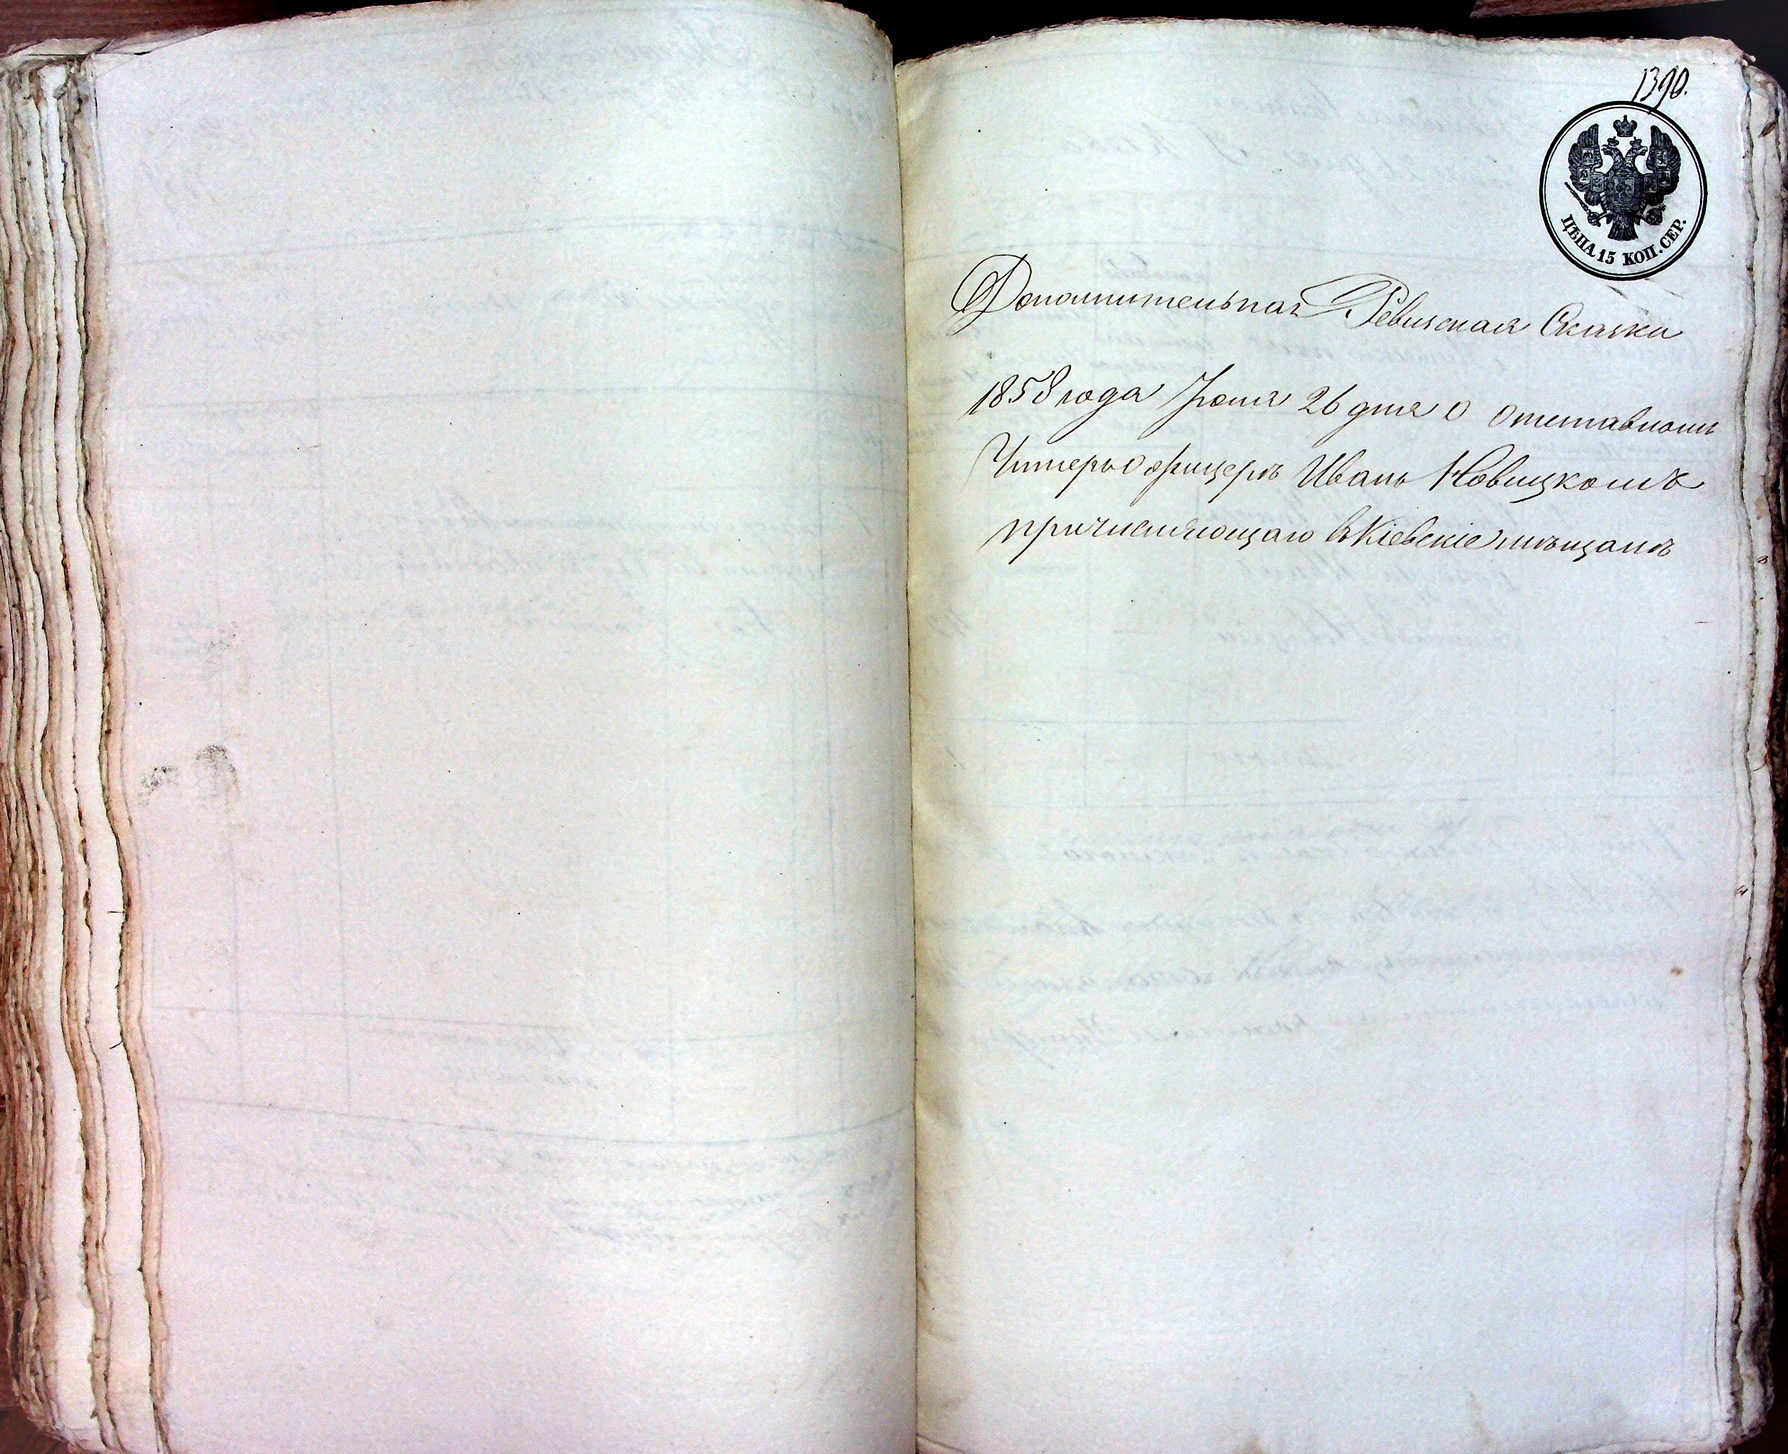 1390.
ЦѢНА 15 КОП. СЕР.
Дополнительная Ревизская Сказка
1858 года Июня 26 дня о отставномъ
Унтеръ Офицерѣ Иванѣ Новицкомъ
причисляющаго въ Кіевскіе мѣщане